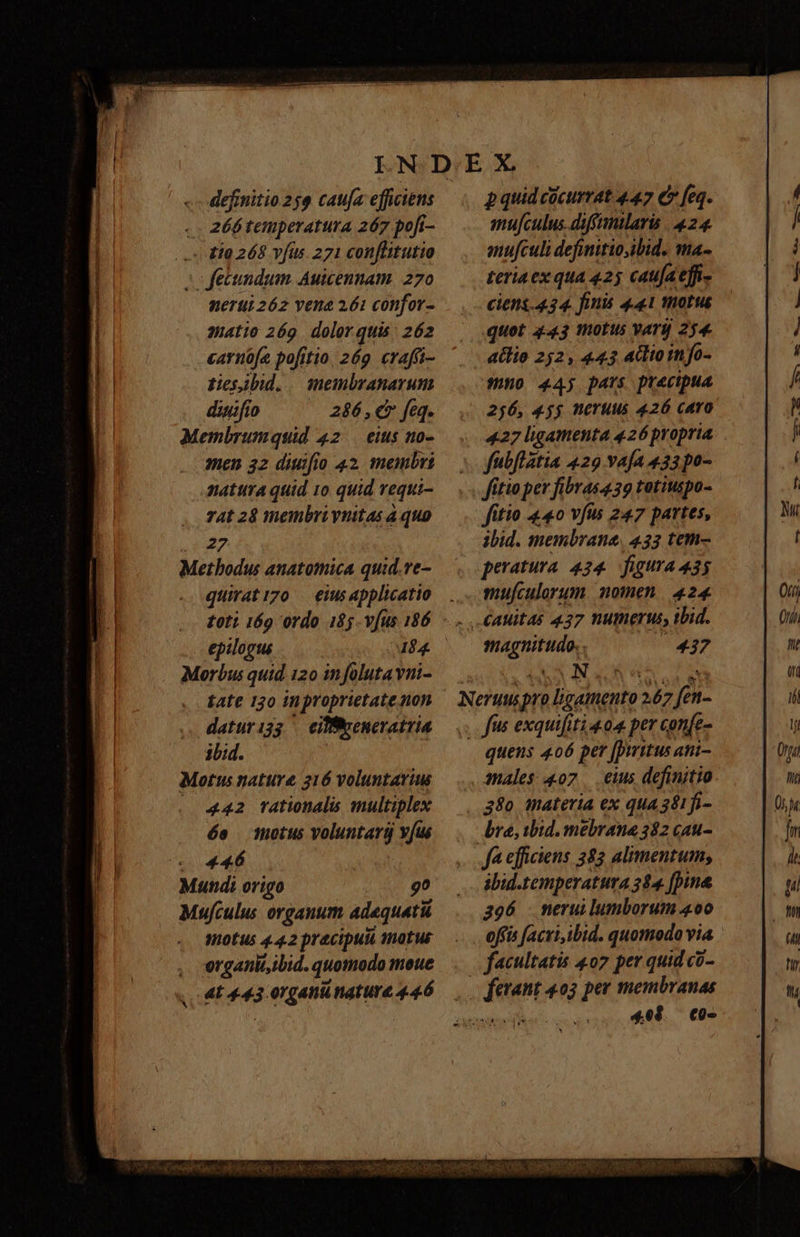 INDEX
definitio 259 cauſa efficiens
266 temperatura 267 poſi-
tio 268 vſus 271 conſtitutio
ſecundum Auicennam 270
nerui 262 vena 261 confor-
matio 269 dolor quis 262
carnoſa poſitio 269 craſſi-
ties, ibid. membranarum
diuiſio 286, & ſeq.
Membrum quid 42 eius no-
men 32 diuiſio 42 membri
natura quid 10 quid requi-
rat 28 membri vnitas à quo
27
Methodus anatomica quid re-
quirat 170 eius applicatio
toti 169 ordo 185 vſus 186
epilogus 184
Morbus quid 120 in ſoluta vni-
tate 130 in proprietate non
datur 133
ibid.
Motus naturæ 316 voluntarius
442 rationalis multiplex
60 motus voluntarij vſus
446
Mundi origo 90
Muſculus organum adæquatũ
motus 442 præcipuũ motus
organũ, ibid. quomodo moue
at 443 organũ naturæ 446
p quid cõcurrat 447 & ſeq.
muſculus diſſimilaris 424
muſculi definitio, ibid. ma-
teria ex qua 425 cauſa effi-
ciens 434 finis 441 motus
quot 443 motus varij 254
actio 252, 443 actio in ſo-
mno 445 pars præcipua
256, 455 neruus 426 caro
427 ligamenta 426 propria
ſubſtãtia 429 vaſa 433 po-
ſitio per fibras 439 totius po-
ſitio 440 vſus 247 partes,
ibid. membrana 433 tem-
peratura 434 figura 435
muſculorum nomen 424
cauitas 437 numerus, ibid.
magnitudo. 437
N
Neruus pro ligamento 267 ſen-
ſus exquiſiti 404 per conſe-
quens 406 per ſpiritus ani-
males 407 eius definitio
380 materia ex qua 381 fi-
bræ, ibid. mẽbranæ 382 cau-
ſa efficiens 383 alimentum,
ibid. temperatura 384 ſpinæ
396 nerui lumborum 400
oſſis ſacri, ibid. quomodo via
facultatis 407 per quid cõ-
ferant 403 per membranas
408 co-